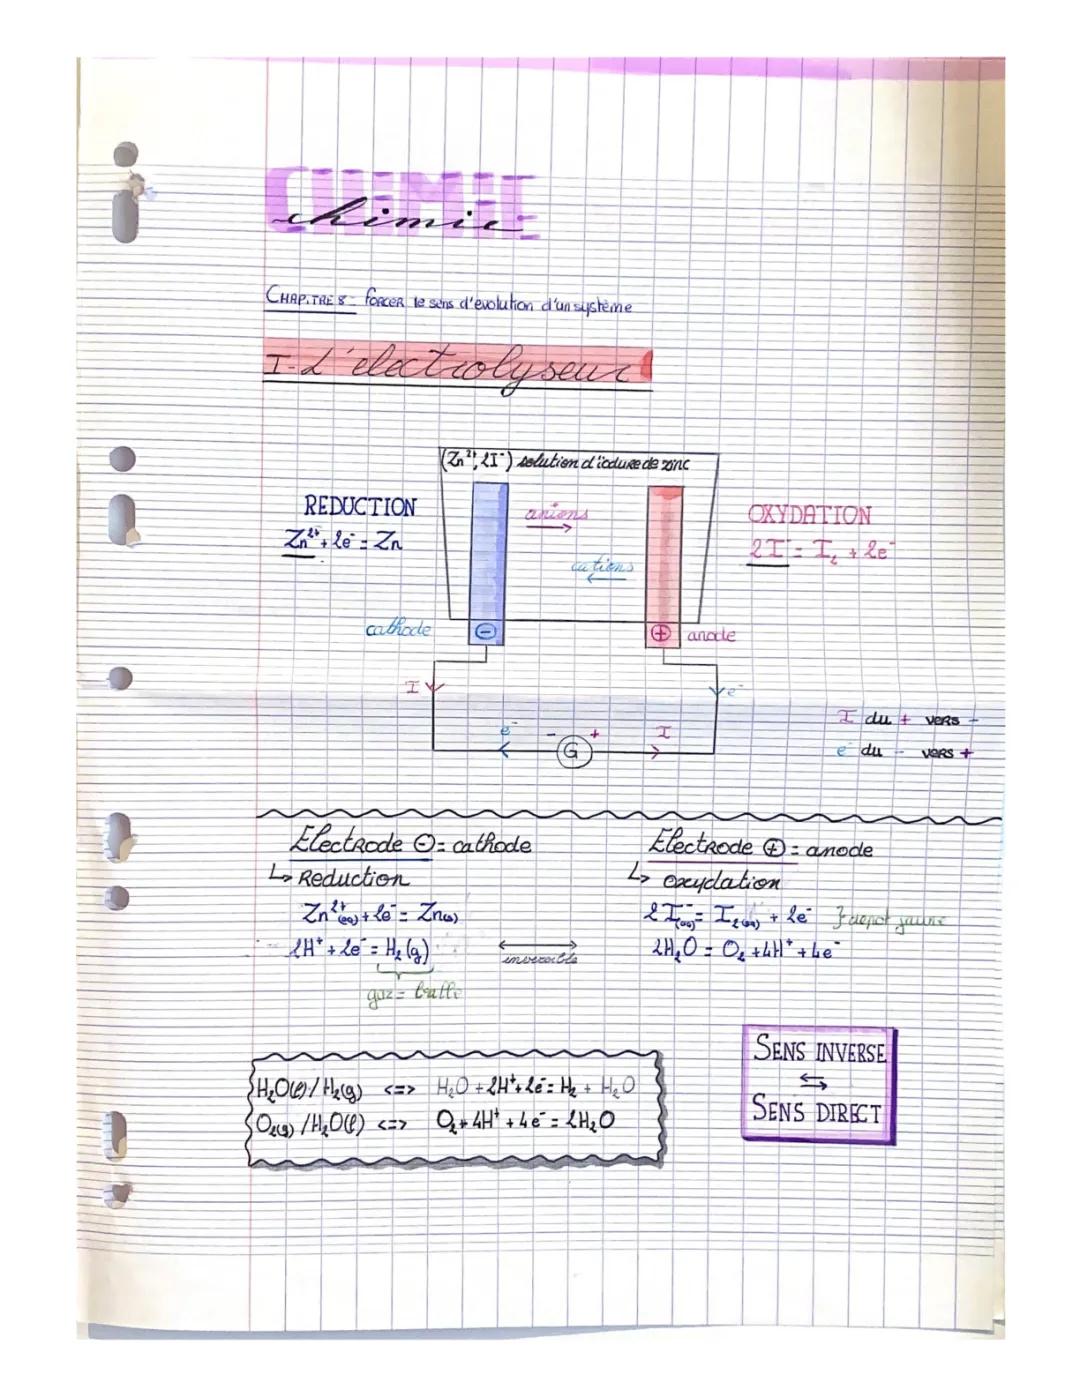 CHIMIE
chimie
CHAPITRE 8 - FORCER le sens d'evolution d'un système
I - L'électrolyseur
(Zn²⁺, 2I⁻) solution d'iodure de zinc
REDUCTION
Zn²⁺ + 2e⁻ = Zn
anions
cations
OXYDATION
2I⁻ = I₂ + 2e⁻
cathode
⊖
⊕
anode
I
e⁻
e⁻
-
+
I
G
I du + VERS -
e⁻ du - VERS +
Electrode ⊖ = cathode
↳ Reduction
Zn²⁺(aq) + 2e⁻ = Zn(s)
2H⁺ + 2e⁻ = H₂(g)
gaz = bulle
Electrode ⊕ = anode
↳ oxydation
2I⁻(aq) = I₂(aq) + 2e⁻ } depot jaune
2H₂O = O₂ + 4H⁺ + 4e⁻
H₂O(l)/H₂(g) <=> H₂O + 2H⁺ + 2e⁻ = H₂ + H₂O
O₂(g)/H₂O(l) <=> O₂ + 4H⁺ + 4e⁻ = 2H₂O
SENS INVERSE
⇆
SENS DIRECT